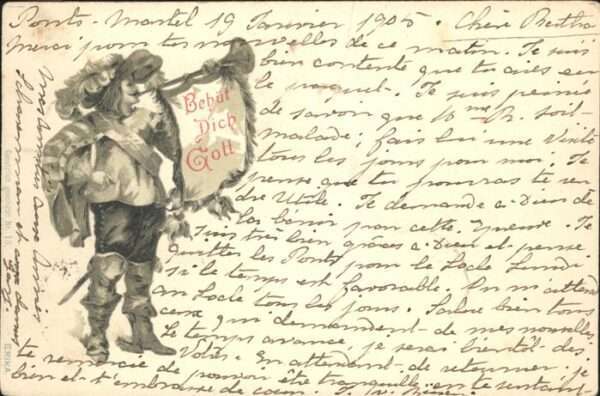 Ponts-Martel 19 Janvier 1905. Chère Bertha
Merci pour tes nouvelles de ce matin. Je suis
bien contente que tu aies eu
le paquet. Je suis peinée
de savoir que Mme R. soit
malade; fais lui une visite
tous les jours pour moi. Je
pense que tu pourras te ren
dre Utile. Je demande à Dieu de
la bénir pour cette épreuve. Je
suis très bien grâces à Dieu et pense
quitter les Ponts pour le Locle Lundi
si le temps est favorable. On m'attend
au Locle tous les jours. Salue bien tous
ceux qui demandent de mes nouvelles.
Le temps avance, je serai bientôt des
vôtres. En attendant de retourner je
te remercie de pouvoir être tranquille en te sentant
bien et t'embrasse de cœur. T.
Behüt
Dich
Gott
Mes amitiés aux
et aux
ERIKA